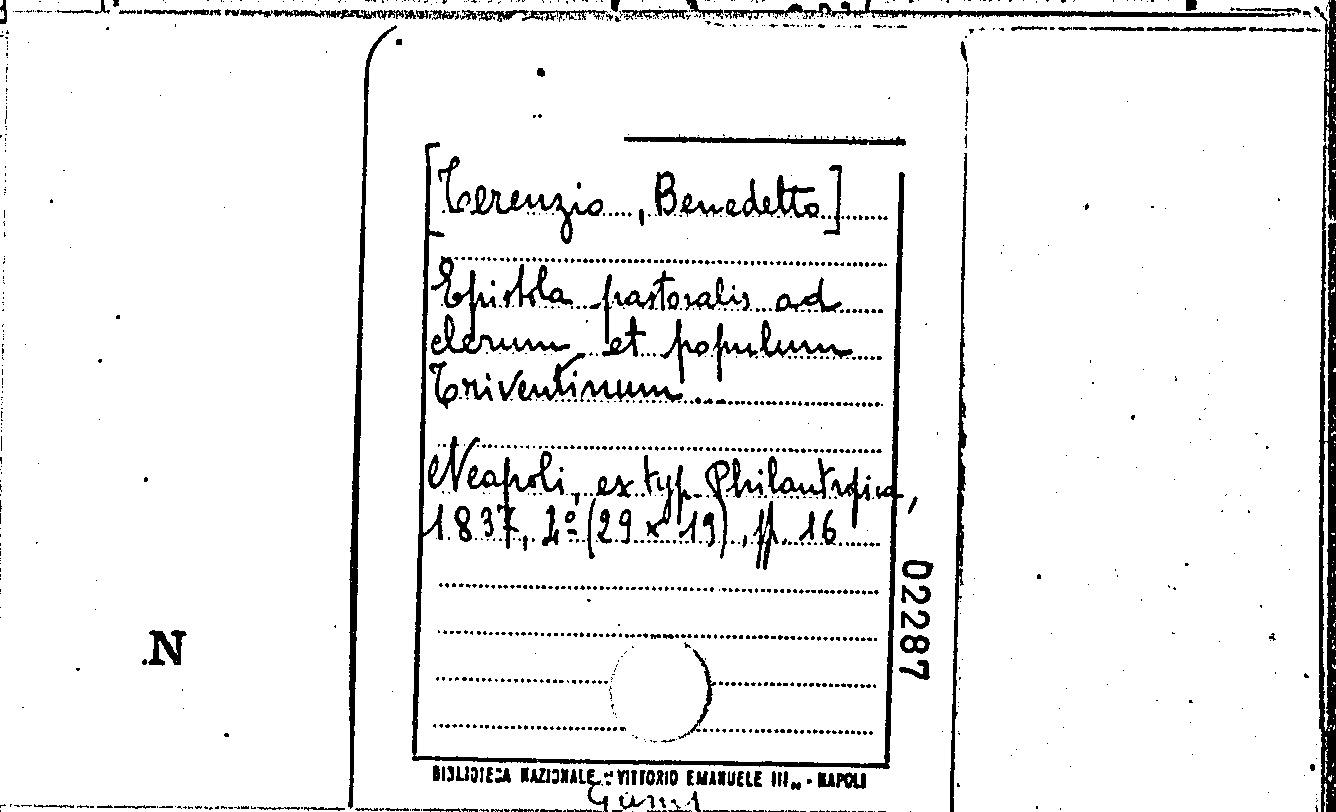 [Terenzio, Benedetto]
Epistola pastoralis ad
clerum et populum
Triventinum...
Neapoli, ex typ. Philantropica,
1837, 2º (29 x 19), pp. 16
02287
N
BIBLIOTECA NAZIONALE "VITTORIO EMANUELE III" - NAPOLI